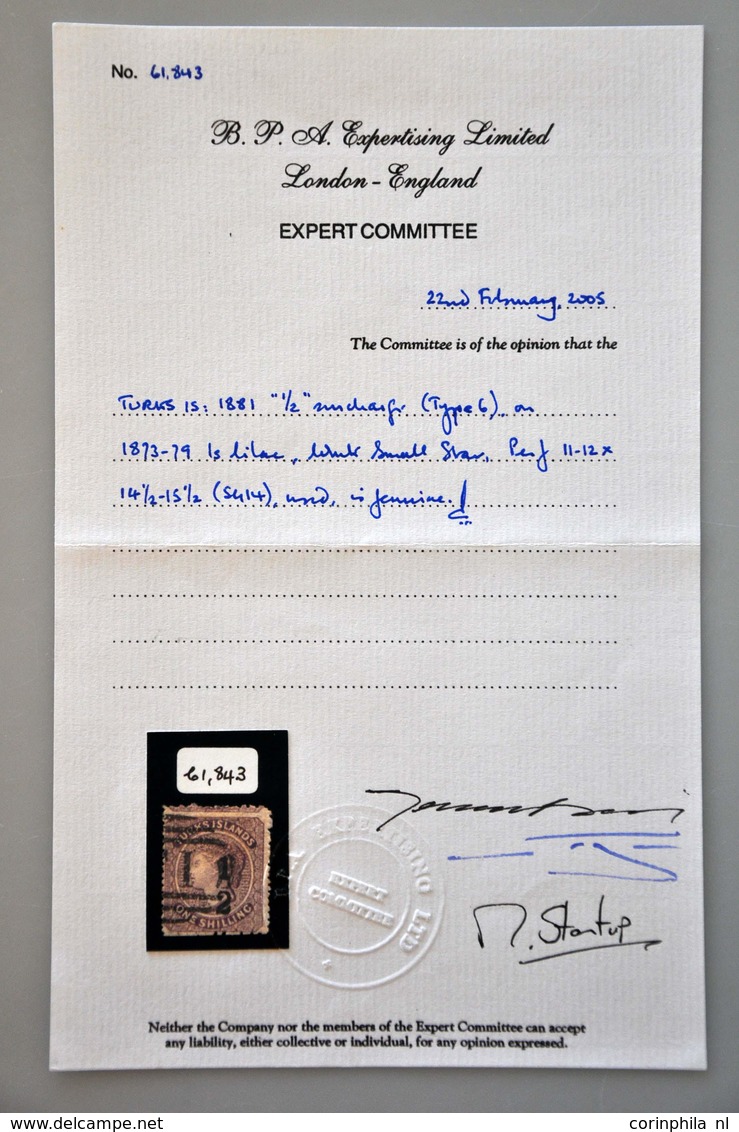 No. 61,843
B. P. A. Expertising Limited
London - England
EXPERT COMMITTEE
22nd February, 2005
The Committee is of the opinion that the
TURKS IS: 1881 "1/2" surcharge (Type 6), on
1873-79 1s lilac, Wmk Small Star, Perf 11-12 x
14½-15½ (SG14), used, is genuine.
61,843
TURKS ISLANDS
1
2
ONE SHILLING
EXPERTISING LTD
EXPERT
COMMITTEE
M. Startup
Neither the Company nor the members of the Expert Committee can accept
any liability, either collective or individual, for any opinion expressed.
delcampe.net
corinphila nl